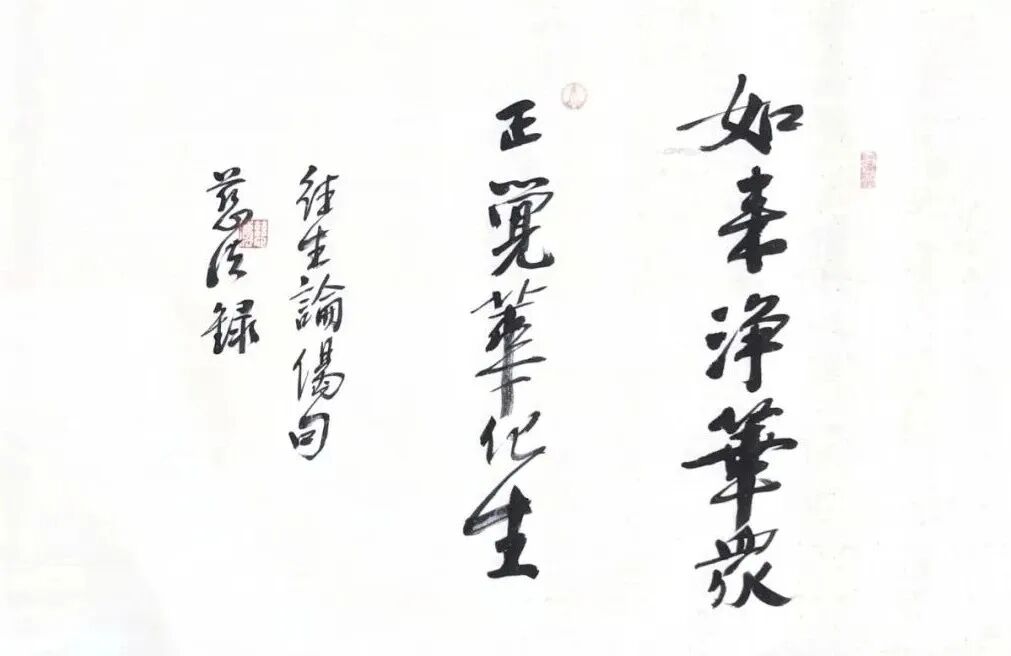 如来淨華衆
正覺華化生
往生論偈句
慈法錄